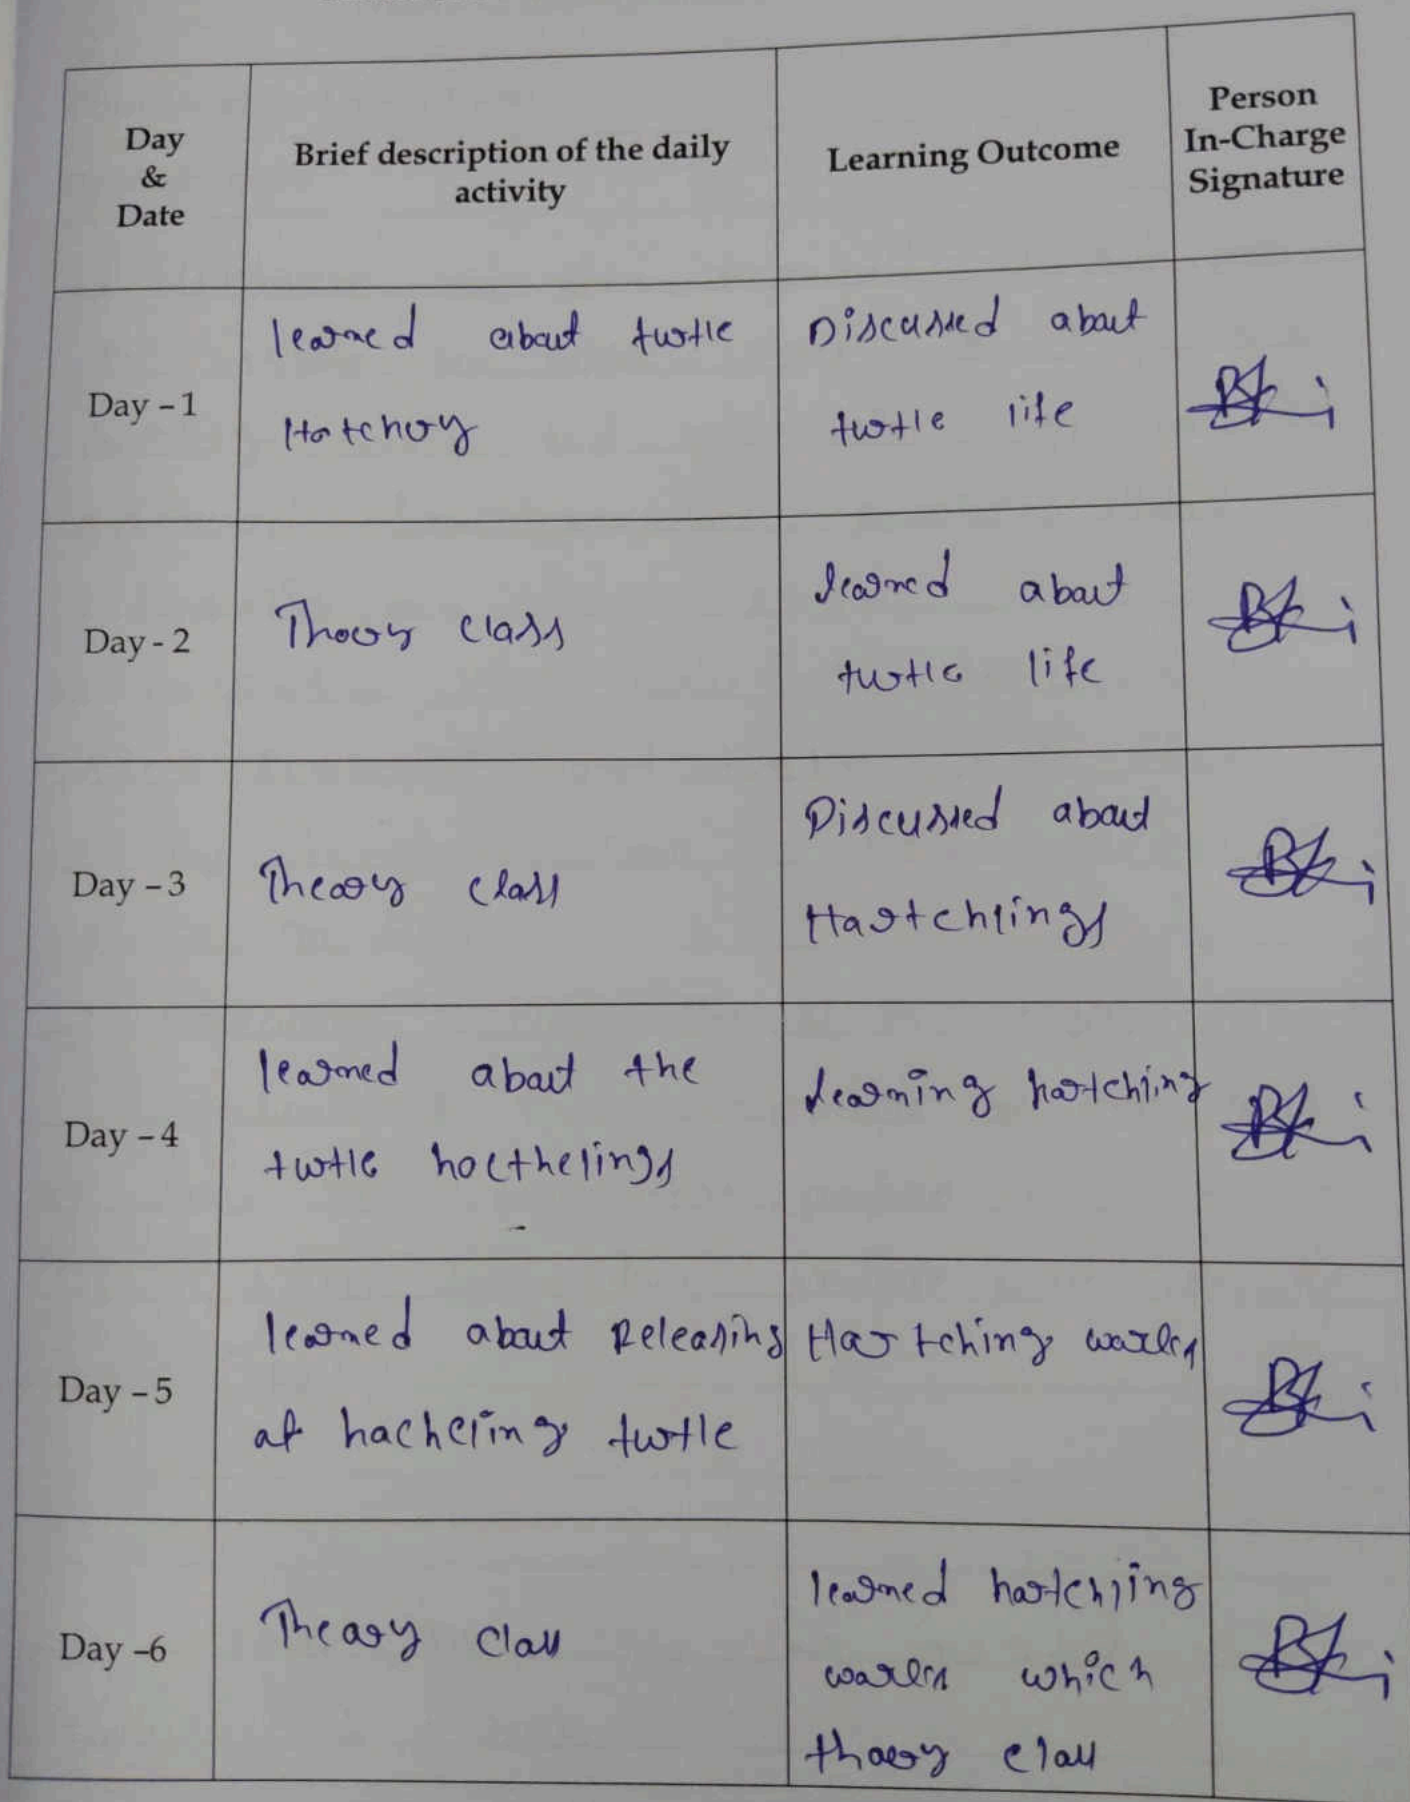 Day
&
Date
Brief description of the daily
activity
Learning Outcome
Person
In-Charge
Signature
Day - 1
learned about turtle
Hatchery
Discussed about
turtle life
Day - 2
Thoory class
learned about
turtle life
Day - 3
Theory class
Discussed about
Hartchlings
Day - 4
learned about the
turtle hocthelings
Learning hartching
Day - 5
learned about Releasing
of hacheling turtle
Hartching works
Day -6
Theory class
learned hartchling
works which
thoery class